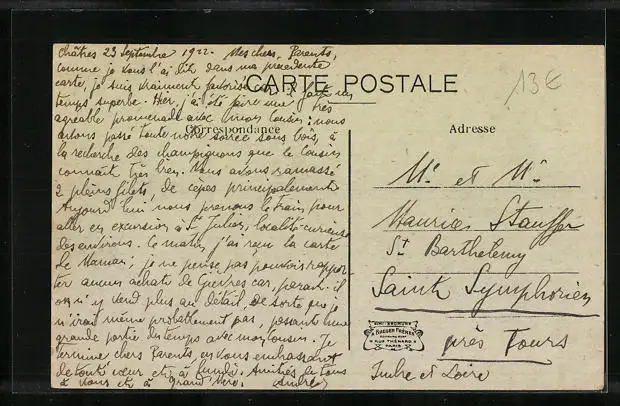 Châtres 23 Septembre 1922. Mes chers Parents,
comme je vous l'ai dit dans ma précédente
carte, je suis vraiment favorisé car il fait un
temps superbe. Hier, j'ai été faire une très
agréable promenade avec mon cousin: nous
avons passé toute notre soirée sous bois, à
la recherche des champignons que le cousin
connaît très bien. Nous avons ramassé
2 pleins filets de cèpes principalement
Aujourd'hui nous prenons le train pour
aller en excursion à St Julien, localité curieuse
des environs. Ce matin, j'ai reçu la carte
de Maman; je ne pense pas pouvoir rappor-
ter aucun achats de Gievres car, paraît-il
on n'y vend plus au détail, de sorte que je
n'irai même probablement pas, passant une
grande partie du temps avec mon cousin. Je
termine chers Parents, en vous embrassant
de tout cœur et à lundi. Amitiés de tous
à vous et à grand'mère. André
CARTE POSTALE
13€
Correspondance
Adresse
Mr et Me
Maurice Stauffer
St Barthelemy
Saint Symphorien
près Tours
Indre et Loire
BAUER FRÈRES
RUE THÉNARD
PARIS